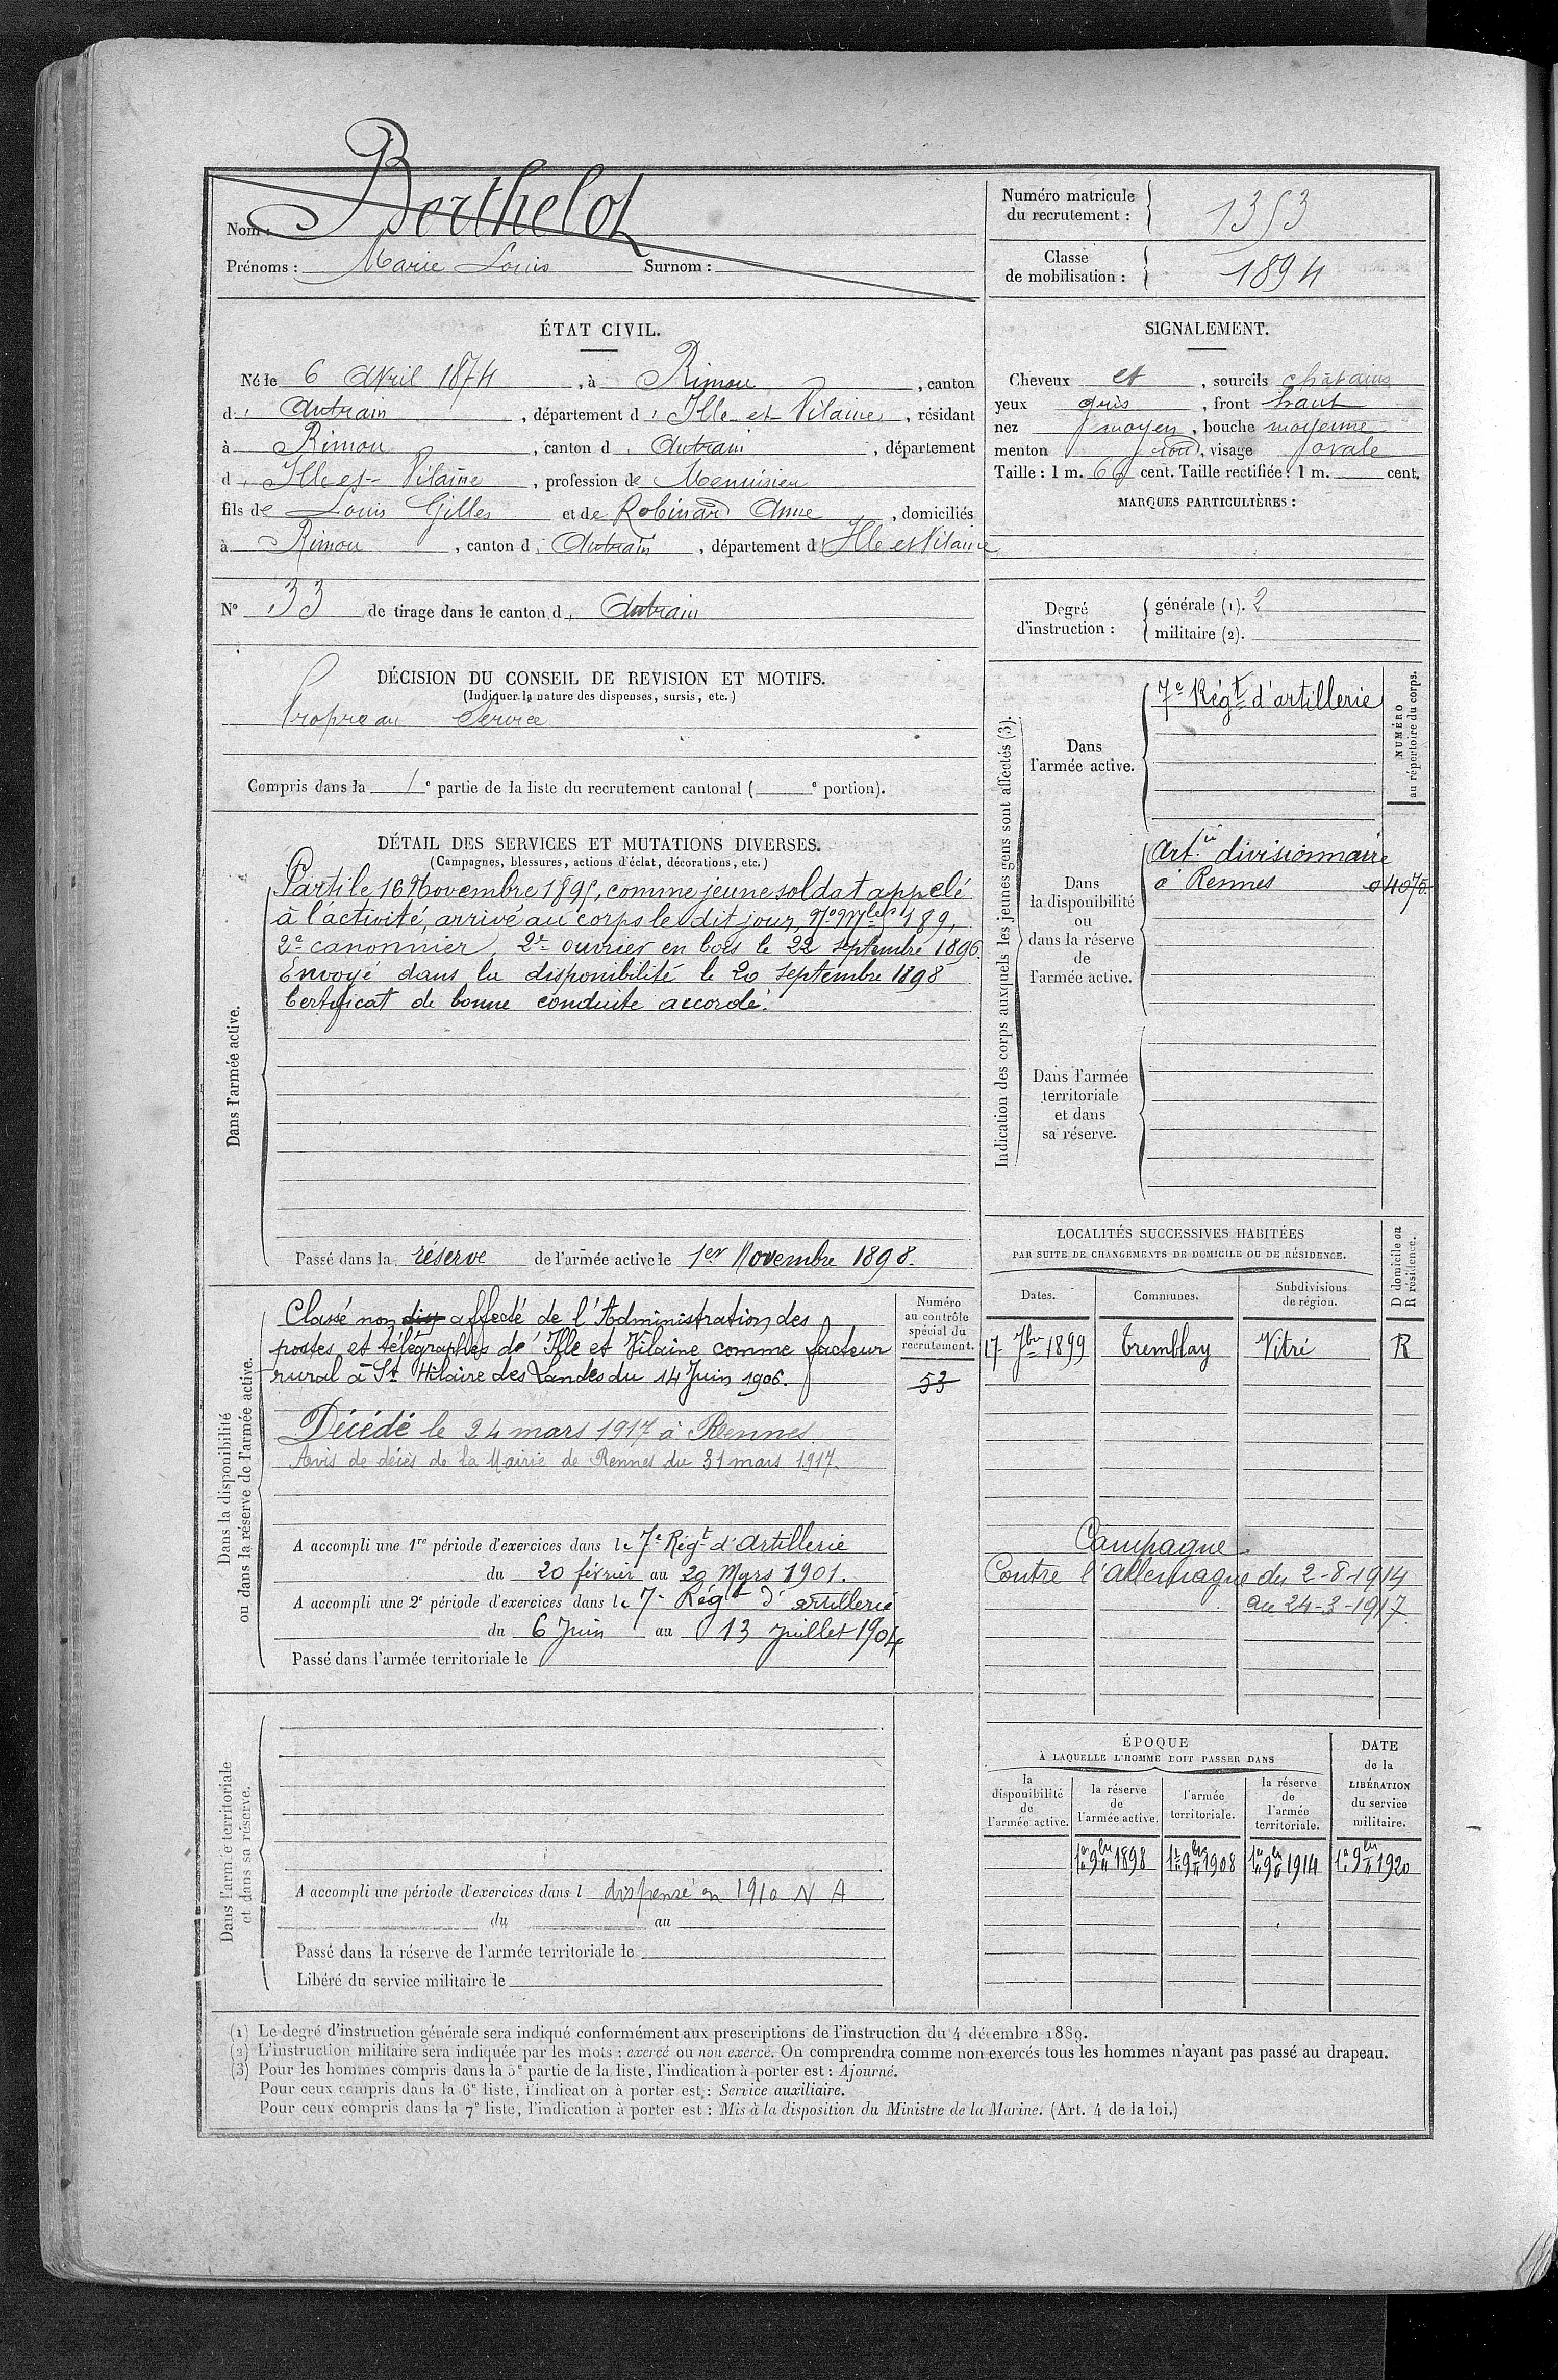 Nom : Berthelot
Prénoms : Marie Louis Surnom :
Numéro matricule
du recrutement : 1353
Classe
de mobilisation : 1894
ÉTAT CIVIL.
Né le 6 Avril 1874, à Rimou, canton
d' Antrain, département d' Ille et Vilaine, résidant
à Rimou, canton d' Antrain, département
d' Ille et Vilaine, profession de Menuisier
fils de Louis Gilles et de Robinard Anne, domiciliés
à Rimou, canton d' Antrain, département d' Ille et Vilaine
N° 33 de tirage dans le canton d' Antrain
SIGNALEMENT.
Cheveux et, sourcils châtains
yeux gris, front haut
nez moyen, bouche moyenne
menton rond, visage ovale
Taille : 1 m. 66 cent. Taille rectifiée : 1 m. cent.
MARQUES PARTICULIÈRES :
Degré
d'instruction :
générale (1). 2
militaire (2).
DÉCISION DU CONSEIL DE REVISION ET MOTIFS.
(Indiquer la nature des dispenses, sursis, etc.)
Propre au Service
Compris dans la 1e partie de la liste du recrutement cantonal ( e portion).
DÉTAIL DES SERVICES ET MUTATIONS DIVERSES.
(Campagnes, blessures, actions d'éclat, décorations, etc.)
Dans l'armée active.
Parti le 16 Novembre 1895, comme jeune soldat appelé
à l'activité, arrivé au corps le dit jour, No Mle 189,
2e canonnier, 2e ouvrier en bois le 22 septembre 1896.
Envoyé dans la disponibilité le 20 septembre 1898
Certificat de bonne conduite accordé.
Passé dans la réserve de l'armée active le 1er Novembre 1898.
Indication des corps auxquels les jeunes gens sont affectés (3).
NUMÉRO
au répertoire du corps.
Dans
l'armée active.
7e Régt d'artillerie
Dans
la disponibilité
ou
dans la réserve
de
l'armée active.
Art.ie divisionnaire
à Rennes 04076
Dans l'armée
territoriale
et dans
sa réserve.
Dans la disponibilité
ou dans la réserve de l'armée active.
Classé non dis affecté de l'Administration des
postes et télégraphes de l'Ille et Vilaine comme facteur
rural à St Hilaire des Landes du 14 Juin 1906.
Numéro
au contrôle
spécial du
recrutement.
53
Décédé le 24 mars 1917 à Rennes
Avis de décès de la Mairie de Rennes du 31 mars 1917.
A accompli une 1re période d'exercices dans le 7e Régt d'Artillerie
du 20 février au 20 Mars 1901.
A accompli une 2e période d'exercices dans le 7e Régt d'artillerie
du 6 Juin au 13 juillet 1904
Passé dans l'armée territoriale le
LOCALITÉS SUCCESSIVES HABITÉES
PAR SUITE DE CHANGEMENTS DE DOMICILE OU DE RÉSIDENCE.
D domicile ou
R résidence.
Dates. Communes. Subdivisions
de région.
17 7bre 1899 Tremblay Vitré R
Campagne
Contre l'Allemagne du 2-8-1914
au 24-3-1917.
Dans l'armée territoriale
et dans sa réserve.
A accompli une période d'exercices dans l dispensé en 1910 N A
du au
Passé dans la réserve de l'armée territoriale le
Libéré du service militaire le
ÉPOQUE
À LAQUELLE L'HOMME DOIT PASSER DANS
la
disponibilité
de
l'armée active.
la réserve
de
l'armée active.
l'armée
territoriale.
la réserve
de
l'armée
territoriale.
DATE
de la
LIBÉRATION
du service
militaire.
1er 9bre 1898 1er 9bre 1908 1er 9bre 1914 1er 9bre 1920
(1) Le degré d'instruction générale sera indiqué conformément aux prescriptions de l'instruction du 4 décembre 1889.
(2) L'instruction militaire sera indiquée par les mots : exercé ou non exercé. On comprendra comme non exercés tous les hommes n'ayant pas passé au drapeau.
(3) Pour les hommes compris dans la 5e partie de la liste, l'indication à porter est : Ajourné.
Pour ceux compris dans la 6e liste, l'indication à porter est : Service auxiliaire.
Pour ceux compris dans la 7e liste, l'indication à porter est : Mis à la disposition du Ministre de la Marine. (Art. 4 de la loi.)